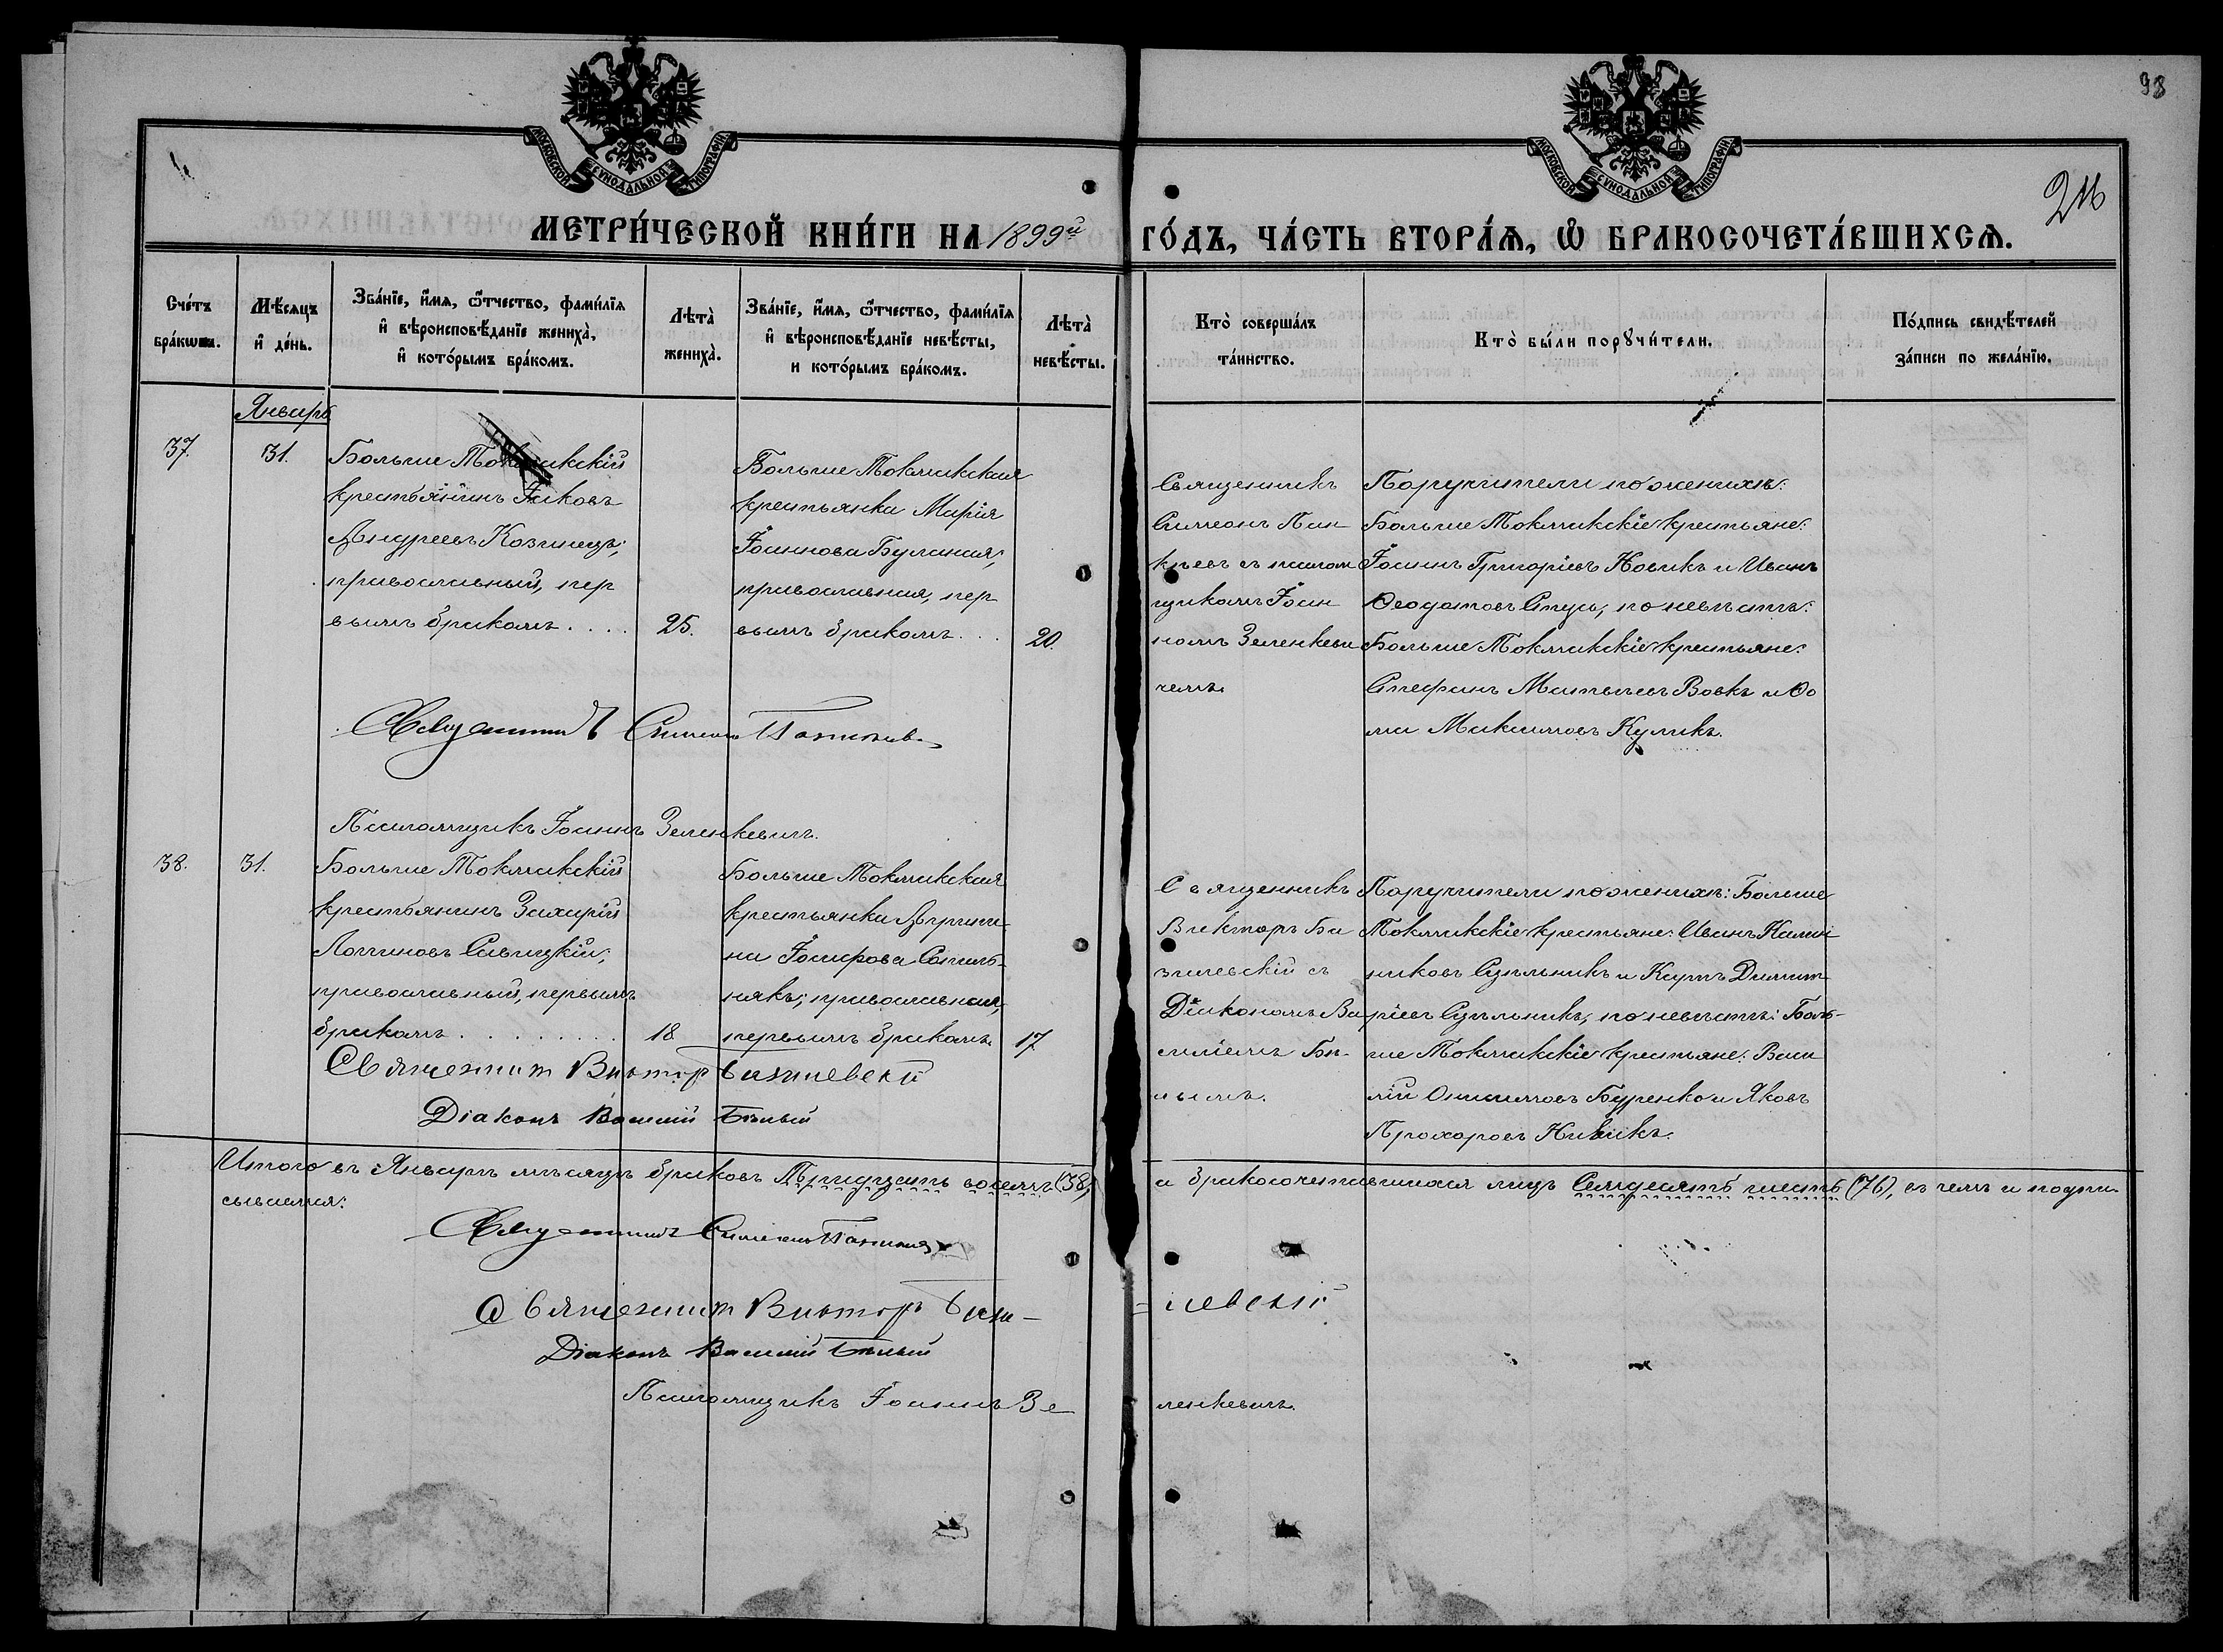 98
216
МОСКОВСКОЙ СѴНОДАЛЬНОЙ ТИПОГРАФІИ
МОСКОВСКОЙ СѴНОДАЛЬНОЙ ТИПОГРАФІИ
МЕТРИ́ЧЕСКОЙ КНИ́ГИ НА 1899й
ГО́ДЪ, ЧА́СТЬ ВТОРА́Ѧ, Ѽ БРАКОСОЧЕТА́ВШИХСѦ.
Сче́тъ
бра́кѡвъ.
Мѣ́сяцъ
и҆ де́нь.
Зва́нїе, и҆́мѧ, ѻ҆́тчество, фами́лїѧ
и҆ вѣроисповѣ́данїе жениха̀,
и҆ кото́рымъ бра́комъ.
Лѣта̀
жениха̀.
Зва́нїе, и҆́мѧ, ѻ҆́тчество, фами́лїѧ
и҆ вѣроисповѣ́данїе невѣ́сты,
и кото́рымъ бра́комъ.
Лѣта̀
невѣ́сты.
Кто̀ соверша́лъ
та́инство.
Кто̀ бы́ли порꙋчи́тели.
По́дпись свидѣ́телей
за́писи по жела́нїю.
Январь
37.
31.
Больше Токмакскій
крестьянинъ Іаковъ
Андреевъ Козинецъ;
православный, пер
вымъ бракомъ....
25.
Больше Токмакская
крестьянка Марія
Іоаннова Буланая;
православная, пер
вымъ бракомъ...
20.
Священникъ
Симеонъ Пан
кѣевъ съ псалом
щикомъ Іоан
номъ Зеленкеви
чемъ.
Поручители по женихѣ:
Больше Токмакскіе крестьяне:
Іоаннъ Григоріевъ Новикъ и Иванъ
Ѳеодотовъ Стусь; по невѣстѣ:
Больше Токмакскіе крестьяне:
Стефанъ Матвѣевъ Вовкъ и Ѳо
ма Максимовъ Куликъ.
Священникъ Симеонъ Панкѣевъ
Псаломщикъ Іоаннъ Зеленкевичъ.
38.
31.
Больше Токмакскій
крестьянинъ Захарій
Логгиновъ Савицкій;
православный, первымъ
бракомъ.........
18
Больше Токмакская
крестьянка Агрипи-
на Іосифова
някъ; православная,
первымъ бракомъ.
17
Священникъ
Викторъ Би
зилевскій съ
Діакономъ Ва
силіемъ Бѣ-
лымъ.
Поручители по женихѣ: Больше
Токмакскіе крестьяне: Иванъ Калин
никовъ Сукальникъ и Карпъ Димит
ріевъ Сукальникъ; по невѣстѣ: Боль-
ше Токмакскіе крестьяне: Васи
лій Онисимовъ Буренко и Яковъ
Прохоровъ Новикъ.
Священникъ Викторъ Базилевскій
Діаконъ Василій Бѣлый
Итого въ Январѣ мѣсяцѣ браковъ Тридцать восемь (38),
а бракосочетавшихся лицъ Семдесятъ шесть (76), въ чемъ и подпи-
сываемся:
Священникъ Симеонъ Панкѣевъ
Священникъ Викторъ Бази-
левскій
Діаконъ Василій Бѣлый
Псаломщикъ Іоаннъ Зе
ленкевичъ.